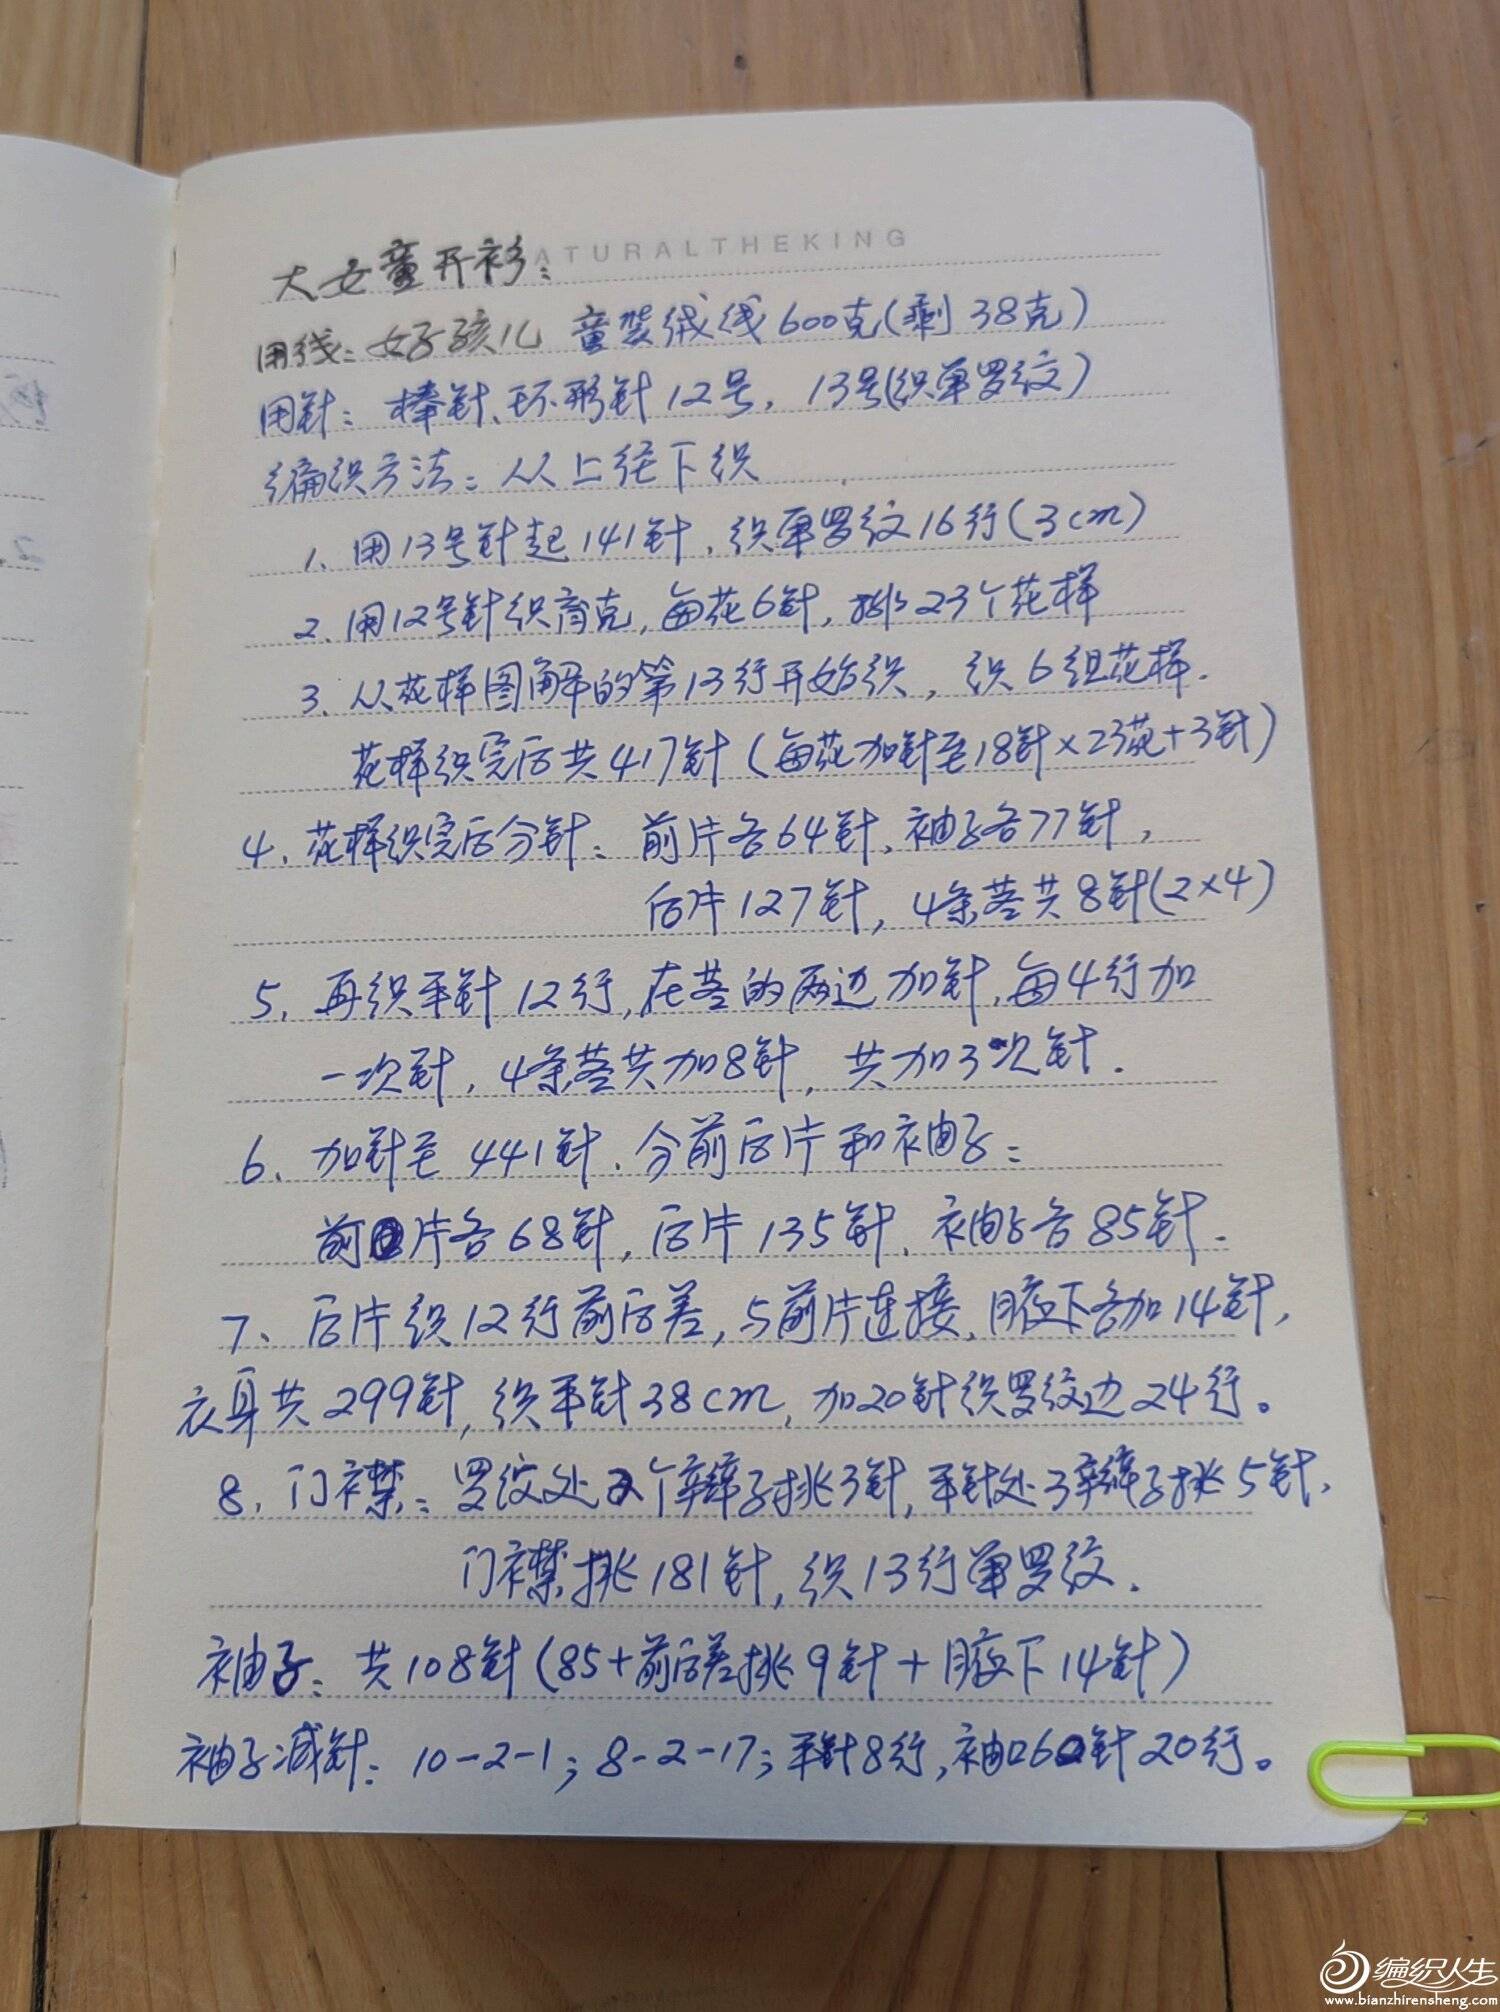 NATURALTHEKING
大女童开衫：
用线：好孩儿 童装绒线600克(剩38克)
用针：棒针、环形针12号，13号(织单罗纹)
编织方法：从上往下织
1、用13号针起141针，织单罗纹16行(3cm)
2、用12号针织育克，每花6针，排23个花样
3、从花样图解的第13行开始织，织6组花样.
花样织完后共417针(每花加针至18针×23花+3针)
4、花样织完后分针：前片各64针，袖子各77针，
后片127针，4条茎共8针(2×4)
5、再织平针12行，在茎的两边加针，每4行加
一次针，4条茎共加8针，共加3次针.
6、加针至441针，分前后片和袖子：
前片各68针，后片135针，袖子各85针.
7、后片织12行前后差，与前片连接，腋下各加14针，
衣身共299针，织平针38cm，加20针织罗纹边24行。
8、门襟：罗纹处2个辫子挑3针，平针处3辫子挑5针，
门襟挑181针，织13行单罗纹.
袖子：共108针(85+前后差挑9针+腋下14针)
袖子减针：10-2-1；8-2-17；平针8行，袖口60针20行。
编织人生
www.bianzhirensheng.com